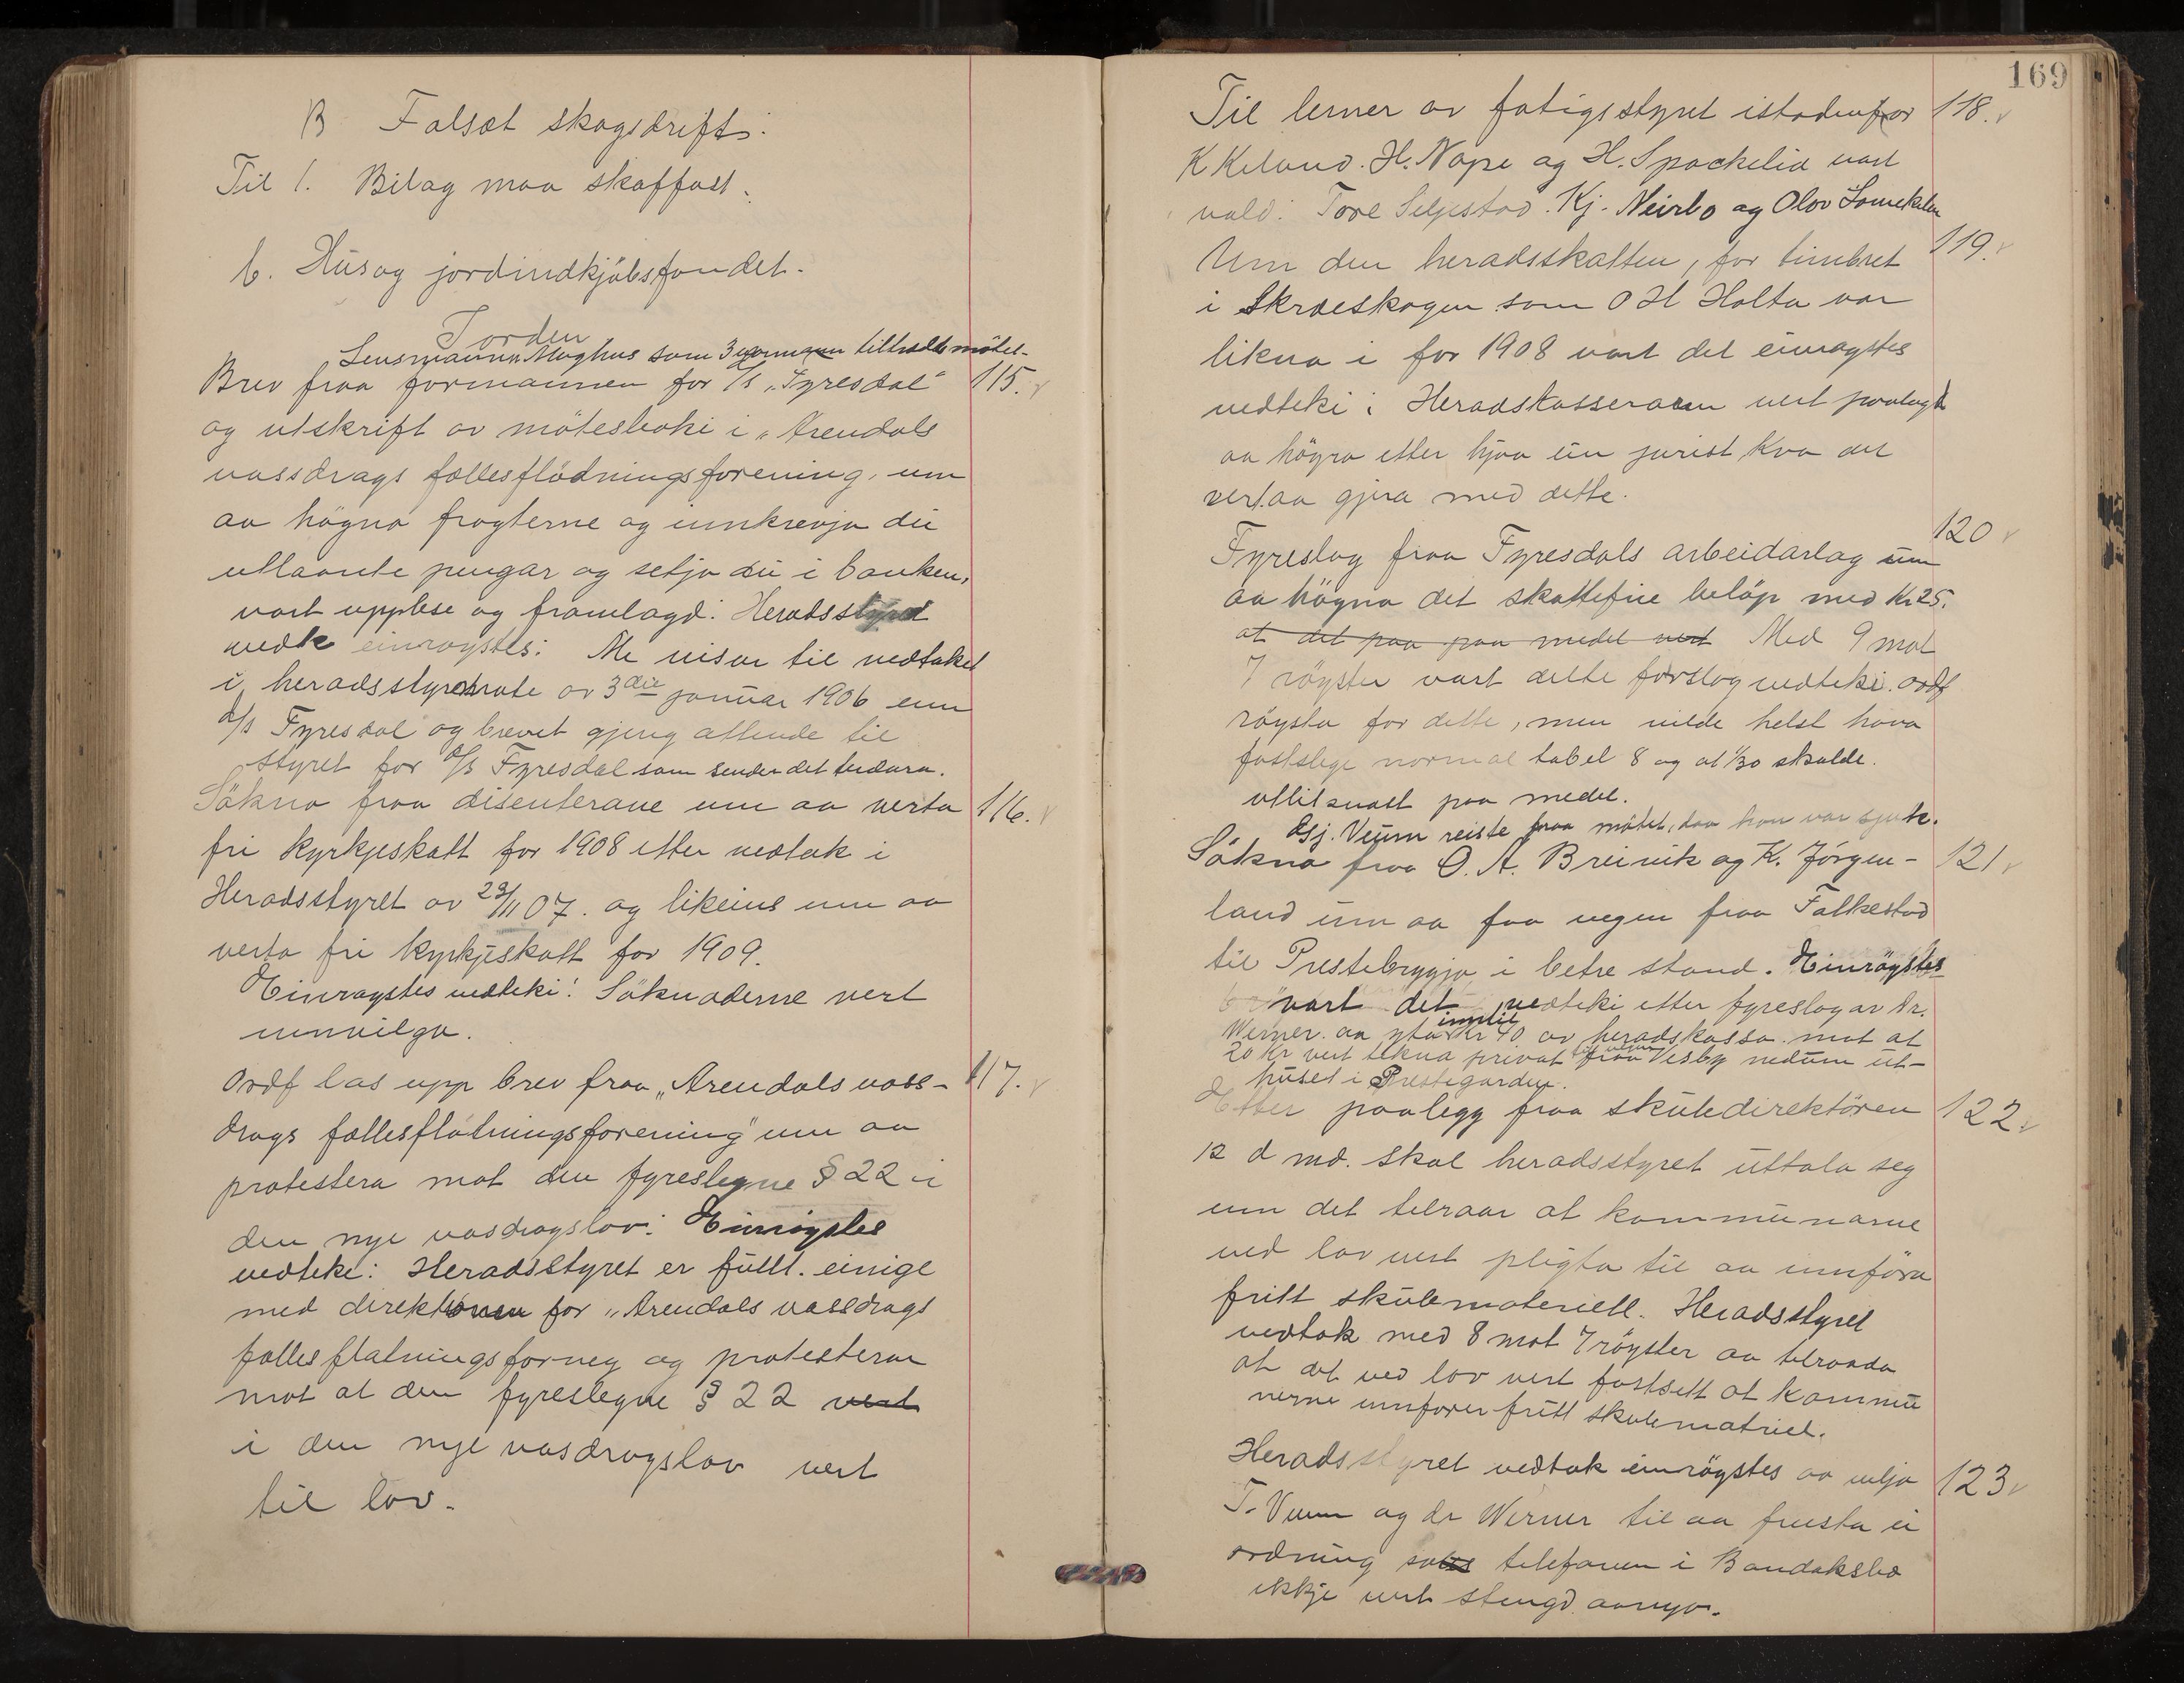 B Falsat skogsdrift:
Til 1. Bilag maa skaffast.
b. Hus og jordindkjøbsfondet.
Torden
Lensmannen Moghus som 3 varmann tiltradde mötet.
Brev fraa formannen for A/S "Fyresdal" 115.
og utskrift av mötesboki i "Arendals
vassdrags fællesflödningsforening, um
aa högna fragterne og innkrevja dei
utlaante pengar og setja dei i banken,
vart upplese og framlagd: Heradsstyret
vedtk einrøystes: Me visar til vedtaket
i heradsstyremöte av 3die januar 1906 um
A/S Fyresdal og brevet gjeng attende til
styret for A/S Fyresdal som sender det tendara.
Sökna fraa disenterane um aa verta 116.
fri kyrkjeskatt for 1908 etter vedtak i
Heradsstyret av 29/11 07. og likeins um aa
verta fri kyrkjeskatt for 1909.
Einrøystes vedteki: Söknaderne vert
innvilga.
Ordf las upp brev fraa "Arendals vass- 117.
drags fællesflötningsforening" um aa
protestera mot den fyreslegne § 22 i
den nye vasdragslov. Einröystes
vedteke: Heradsstyret er fullt. einige
med direktionen for "Arendals vassdrags
fællesflatningsforneg og protesterar
mot at den fyreslegne § 22 vert
i den nye vasdragslov vert
til lov.
169
Til lemer av fatigstyret istadenfor 118.
K Keland. H. Nape og H. Spockelia vart
vald: Tore Seljestad. Kj. Neirbo og Olov Somekilen
Um den heradsskatten, for timbret 119.
i Skræskogen som O H Holta var
likna i for 1908 vart det einrøystes
vedteki: Heradskasseraren vert paalagt
aa högra etter hjaa ein jurist kva det
vert aa gjera med dette.
120
Fyreslag fraa Fyresdals arbeidarlag um
aa högna det skattefrie belöp med Kr 25.
at det paa paa medel vert Med 9 mot
7 röyster vart dette forslag vedteki. Ordf
röysta for dette, men vilde helst hava
fastslege normal tabel 8 og at 1/30 skulde.
utlitznast paa medel.
Asj. Veum reiste fraa mötet, daa han var sjuk.
Sökna fraa O. A. Breivik og K. Jörgen- 121
land um aa faa vegen fraa Falkestad
til Prestebryggja i betre stand. Einröystes
vart det vedteki etter fyreslag av Dr.
Werner. aa yta inntil Kr 40 av heradskassa mot at
20 Kr vert tekna privat fraa Visby nedum ut-
huset i Prestegarden.
Etter paalegg fraa skuledirektören 122.
12 d md. skal heradsstyret uttala seg
um det telraar at kommunarne
ved lov vert pligta til aa innföra
fritt skulemateriell. Heradsstyret
vedtok med 8 mot 7 röyster aa telraada
at det ved lov vert fastsett at kommu
nerne innförer fritt skulematriel.
Heradsstyret vedtok einröystes aa velja 123
T. Veum og dr Werner til aa freista ei
ordning telefonen i Bandaksli
ikkje vert stengd